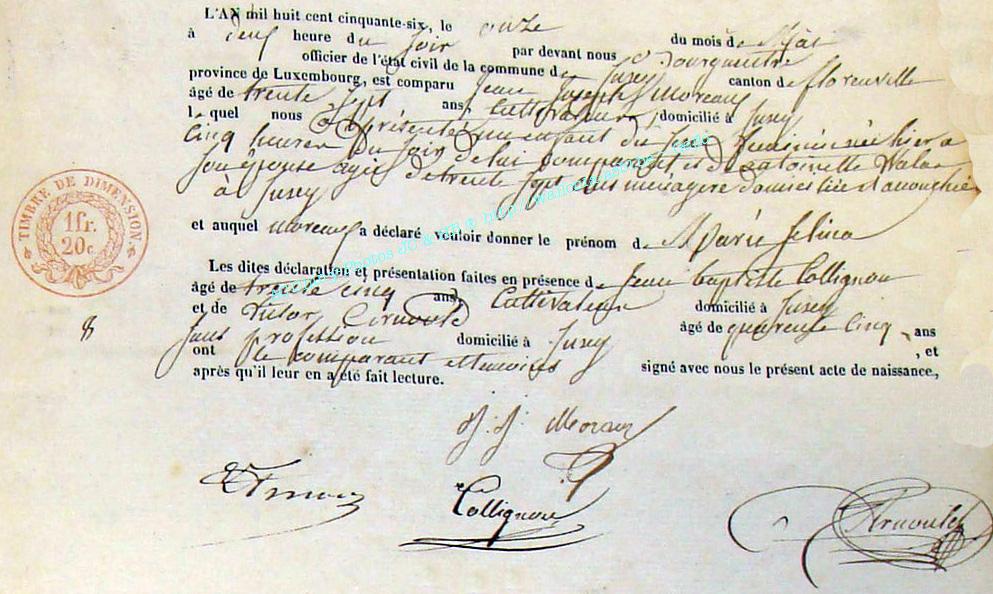 L'AN mil huit cent cinquante-six, le onze du mois de Mai
à deux heure du soir par devant nous
officier de l'état civil de la commune de Jusey canton de florenville
province de Luxembourg, est comparu Jean Joseph Moreau
âgé de trente sept ans, Cultivateur, domicilié à Jusey
lequel nous a présenté un enfant du sexe feminin née hier a
cinq heures du soir de lui comparant et de
son épouse agée de trente sept ans menagère domiciliée
à Jusey
et auquel moreau a déclaré vouloir donner le prénom de Marie felina
Les dites déclaration et présentation faites en présence de Jean baptiste Collignon
âgé de trente cinq ans, Cultivateur domicilié à Jusey
et de Victor Arnould âgé de quarente cinq ans
sans profession domicilié à Jusey , et
ont le comparant et temoins signé avec nous le présent acte de naissance,
après qu'il leur en a été fait lecture.
TIMBRE DE DIMENSION
1 fr.
20 c.
8
J. J. Moreau
Collignon
Arnould